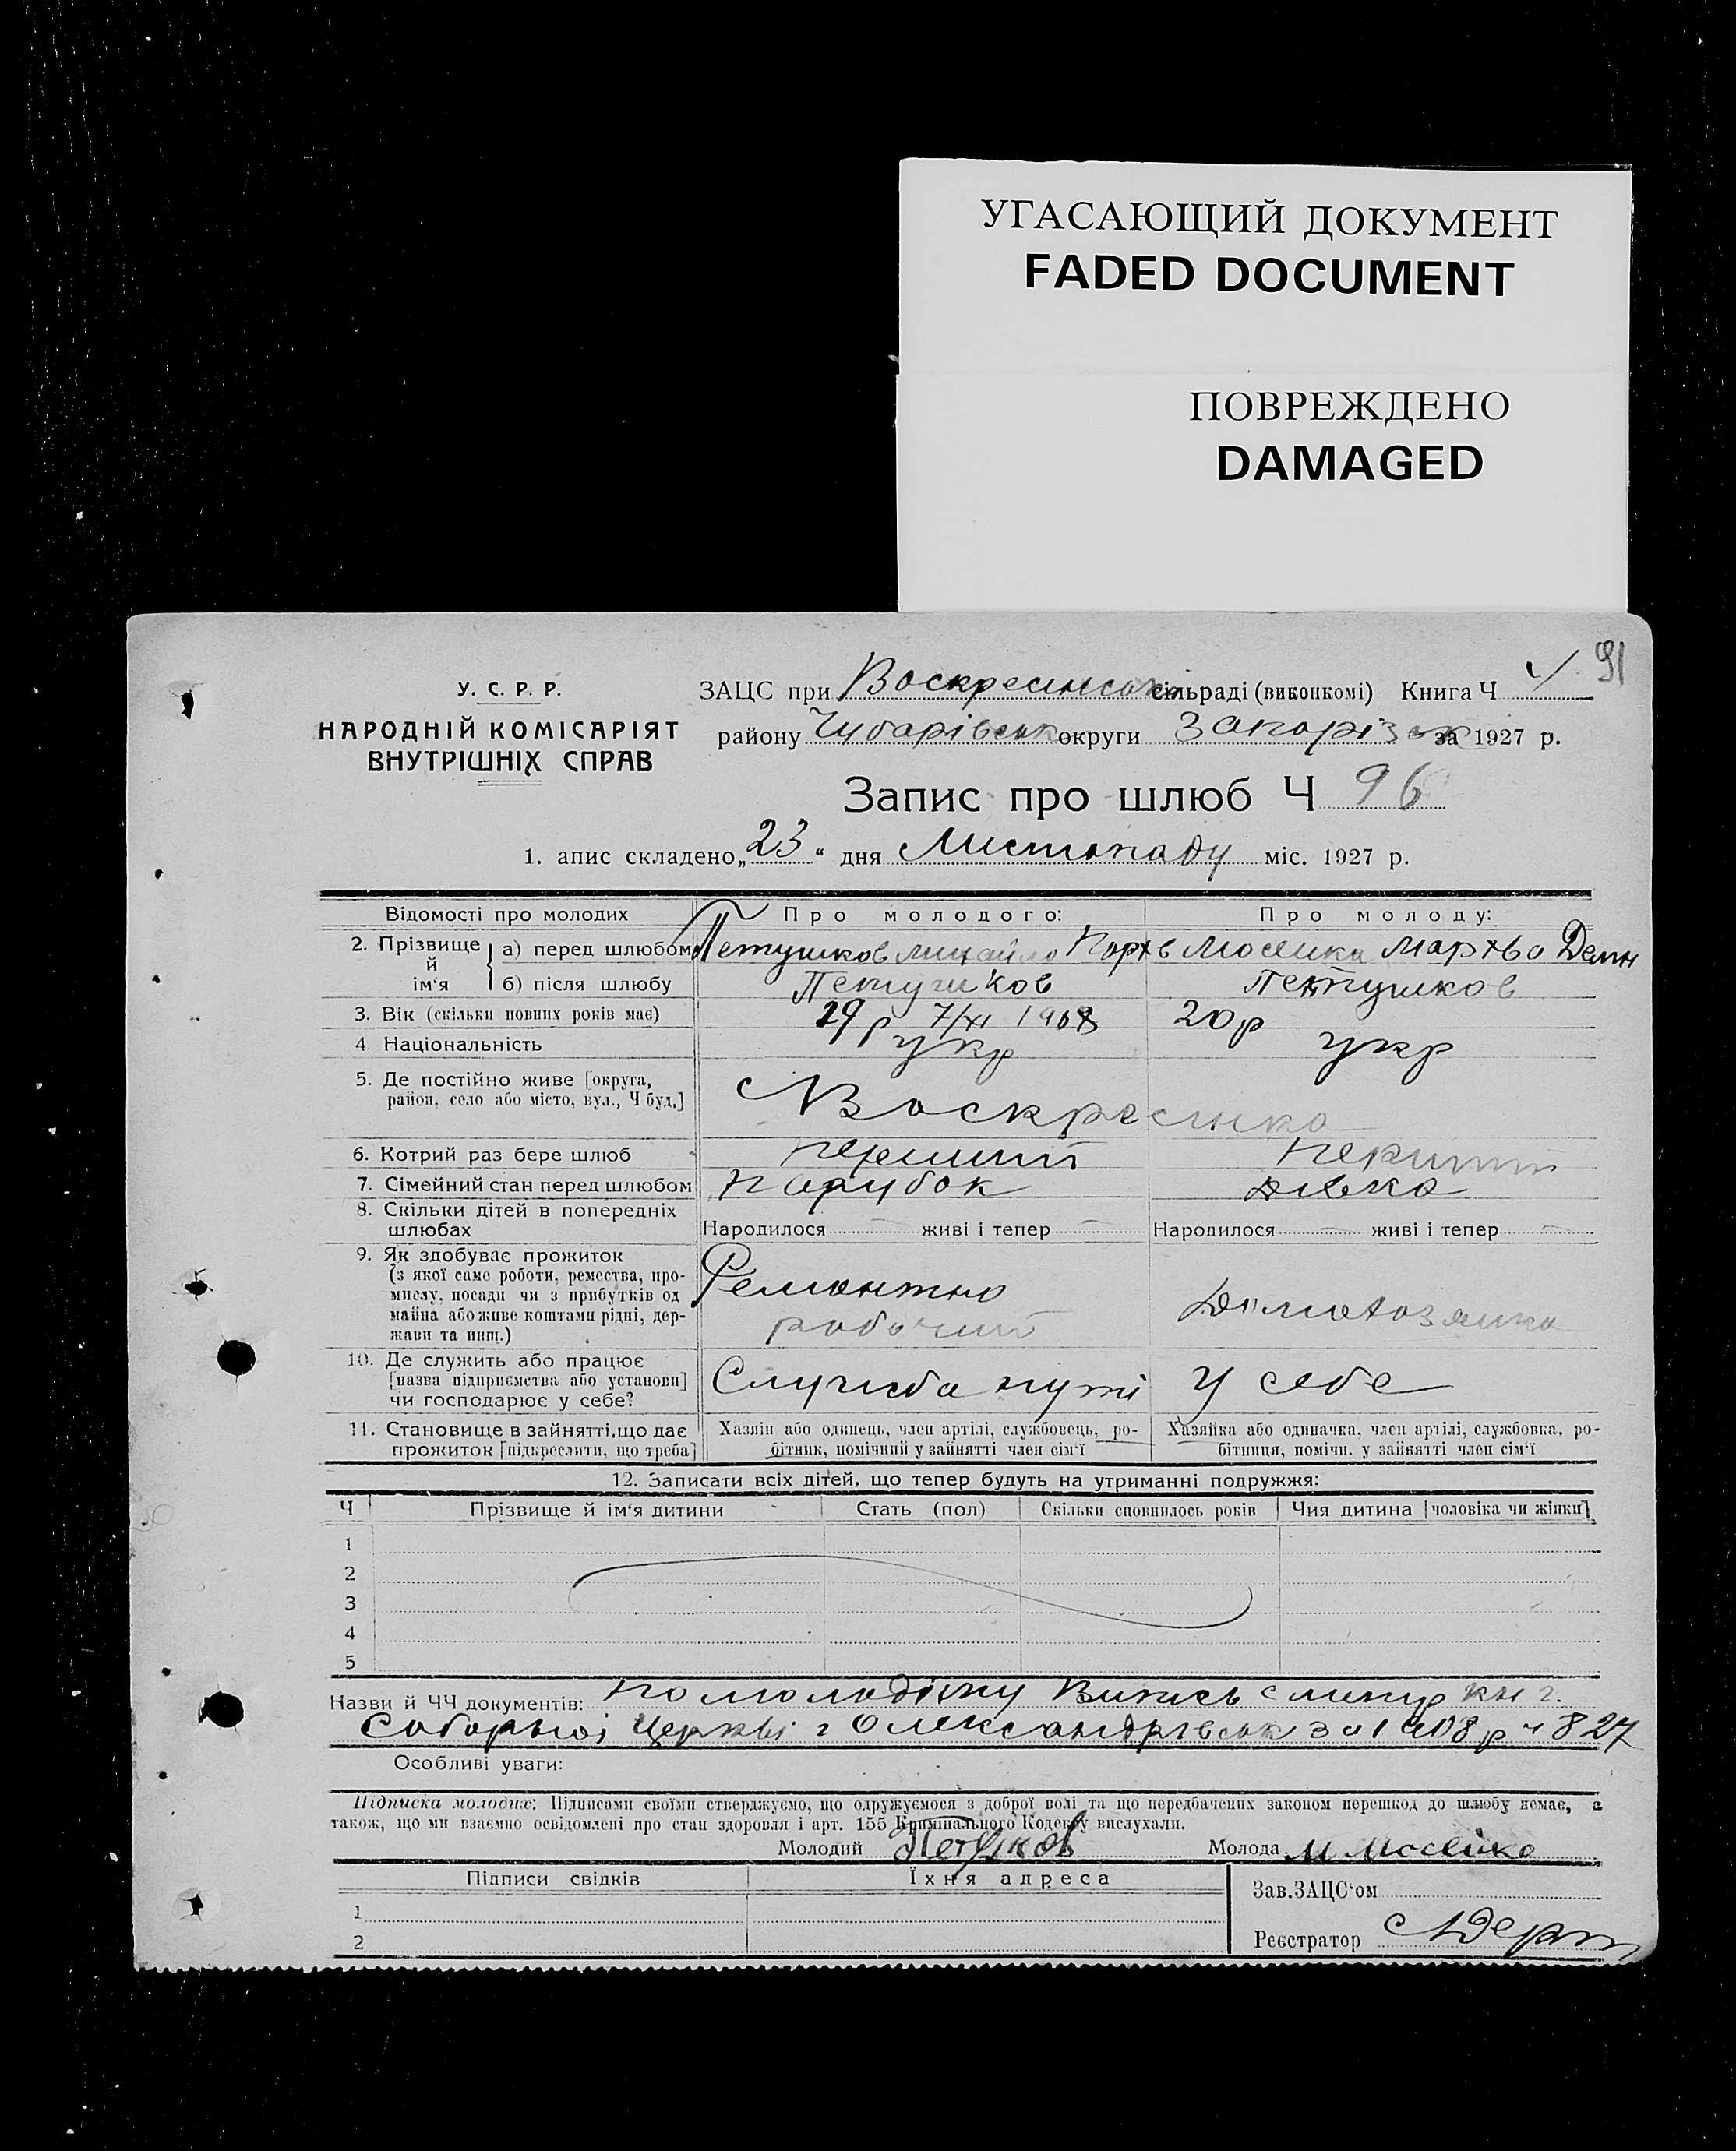 УГАСАЮЩИЙ ДОКУМЕНТ
FADED DOCUMENT
ПОВРЕЖДЕНО
DAMAGED
91
У. С. Р. Р.
НАРОДНІЙ КОМІСАРІЯТ
ВНУТРІШНІХ СПРАВ
ЗАЦС при Воскресинській сільраді (виконкомі) Книга Ч
району Чубарівськ округи Запорізьк за 1927 р.
Запис про шлюб Ч 96
1. апис складено „23“ дня Листопаду міс. 1927 р.
Відомості про молодих Про молодого: Про молоду:
2. Прізвище й ім‘я а) перед шлюбом Петушков Михайло Порхв Мосейка Мархва Демн
б) після шлюбу Петушков Петушков
3. Вік (скільки повних років має) 19 р 7/XI 1908 20 р
4 Національність укр укр
5. Де постійно живе [округа,
район, село або місто, вул., Ч буд.] Воскресенка
6. Котрий раз бере шлюб перший перший
7. Сімейний стан перед шлюбом парубок дівка
8. Скільки дітей в попередніх
шлюбах Народилося — живі і тепер — Народилося — живі і тепер —
9. Як здобуває прожиток
(з якої саме роботи, ремества, про-
мислу, посади чи з прибутків од
майна або живе коштами рідні, дер-
жави та инш.)
Ремонтно
робочий
Домохозяйка
10. Де служить або працює
[назва підприємства або установи]
чи господарює у себе?
Служба путі у себе
11. Становище в зайнятті, що дає
прожиток [підкреслити, що треба]
Хазяїн або одинець, член артілі, службовець, ро-
бітник, помічний у зайнятті член сім‘ї
Хазяйка або одиначка, член артілі, службовка, ро-
бітниця, помічн. у зайнятті член сім‘ї
12. Записати всіх дітей, що тепер будуть на утриманні подружжя:
Ч Прізвище й ім‘я дитини Стать (пол) Скільки сповнилось років Чия дитина [чоловіка чи жінки]
1
2
3
4
5
Назви й ЧЧ документів: по молодіму Випись с метр кн г.
Соборної Церкві г Олександрівськ за 1908 р ч 827
Особливі уваги:
Підписка молодих: Підписами своїми стверджуємо, що одружуємося з доброї волі та що передбачених законом перешкод до шлюбу немає, а
також, що ми взаємно освідомлені про стан здоровля і арт. 155 Кримінального Кодексу вислухали.
Молодий Петушков Молода М Мосейко
Підписи свідків Їхня адреса
Зав. ЗАЦС‘ом
1
2
Реєстратор